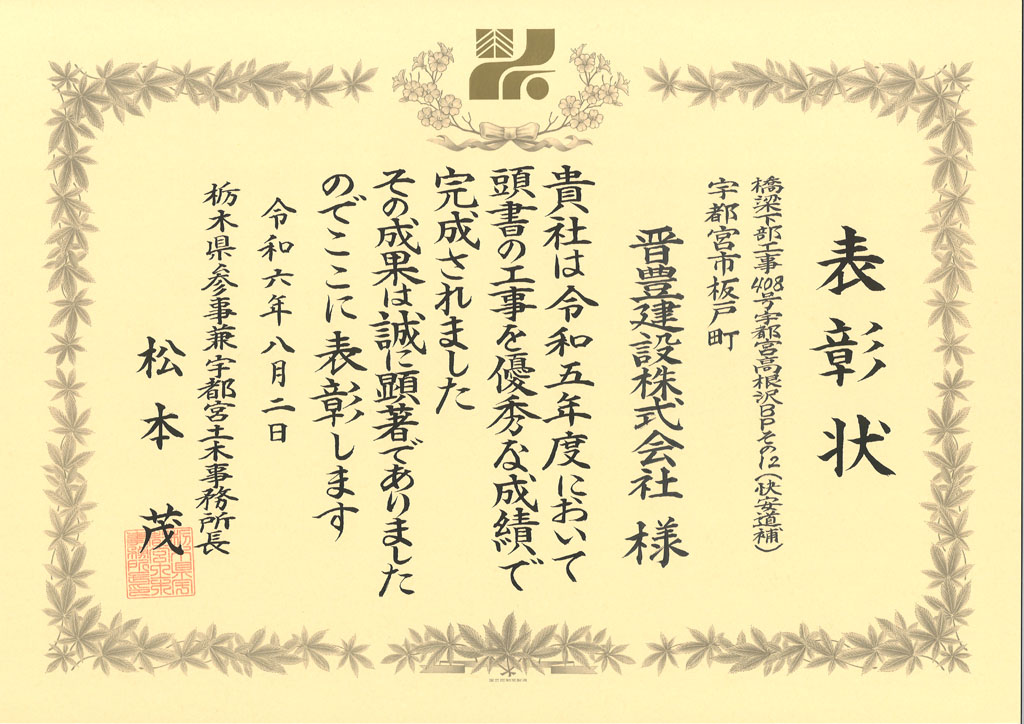 表彰状
橋梁下部工事408号宇都宮高根沢BPその12（快安道補）
宇都宮市板戸町
晋豊建設株式会社 様
貴社は令和五年度において
頭書の工事を優秀な成績で
完成されました
その成果は誠に顕著でありました
のでここに表彰します
令和六年八月二日
栃木県参事兼宇都宮土木事務所長
松本 茂